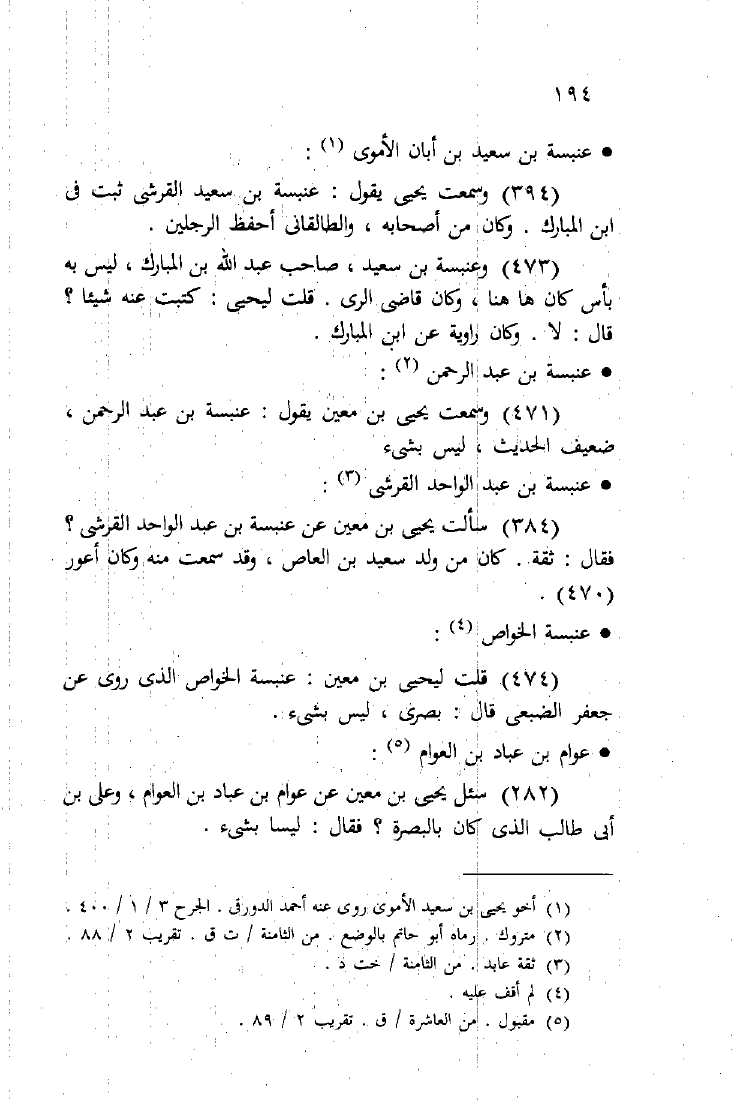 ١٩٤
● عنبسة بن سعيد بن أبان الأموى (١) :
(٣٩٤) وسمعت يحيى يقول : عنبسة بن سعيد القرشى ثبت فى
ابن المبارك . وكان من أصحابه ، والطالقانى أحفظ الرجلين .
(٤٧٣) وعنبسة بن سعيد ، صاحب عبد الله بن المبارك ، ليس به
بأس كان ها هنا ، وكان قاضى الرى . قلت ليحيى : كتبت عنه شيئا ؟
قال : لا . وكان راوية عن ابن المبارك .
● عنبسة بن عبد الرحمن (٢) :
(٤٧١) وسمعت يحيى بن معين يقول : عنبسة بن عبد الرحمن ،
ضعيف الحديث ، ليس بشىء
● عنبسة بن عبد الواحد القرشى (٣) :
(٣٨٤) سألت يحيى بن معين عن عنبسة بن عبد الواحد القرشى ؟
فقال : ثقة . كان من ولد سعيد بن العاص ، وقد سمعت منه وكان أعور
(٤٧٠) .
● عنبسة الخواص (٤) :
(٤٧٤) قلت ليحيى بن معين : عنبسة الخواص الذى روى عن
جعفر الضبعى قال : بصرى ، ليس بشىء .
● عوام بن عباد بن العوام (٥) :
(٢٨٢) سئل يحيى بن معين عن عوام بن عباد بن العوام ، وعلى بن
أبى طالب الذى كان بالبصرة ؟ فقال : ليسا بشىء .
(١) أخو يحيى بن سعيد الأموى روى عنه أحمد الدورقى . الجرح ٣ / ١ / ٤٠٠ .
(٢) متروك . رماه أبو حاتم بالوضع . من الثامنة / ت ق . تقريب ٢ / ٨٨ .
(٣) ثقة عابد . من الثامنة / خت د .
(٤) لم أقف عليه .
(٥) مقبول . من العاشرة / ق . تقريب ٢ / ٨٩ .